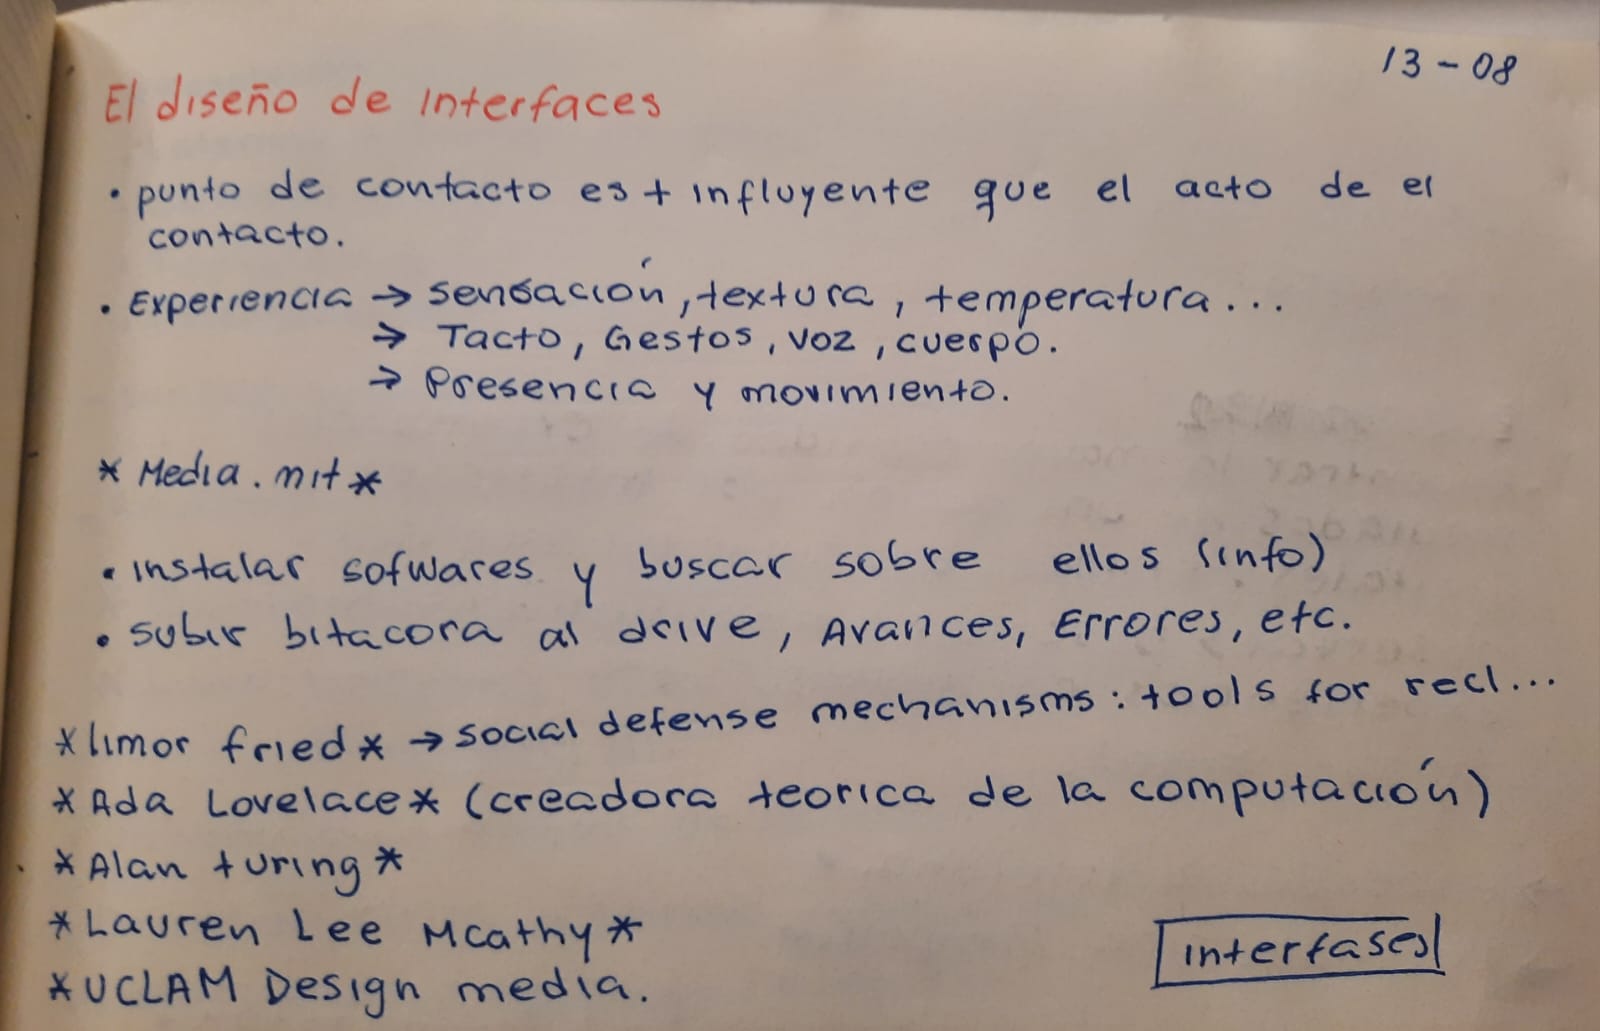 13 - 08
El diseño de interfaces
• punto de contacto es + influyente que el acto de el
contacto.
• Experiencia → sensación, textura, temperatura...
→ Tacto, Gestos, voz, cuerpo.
→ Presencia y movimiento.
* Media.mit *
• instalar sofwares y buscar sobre ellos (info)
• subir bitacora al drive, Avances, Errores, etc.
*limor fried* → social defense mechanisms: tools for recl...
*Ada Lovelace* (creadora teorica de la computación)
*Alan turing*
*Lauren Lee Mcathy*
*UCLAM Design media.
interfases